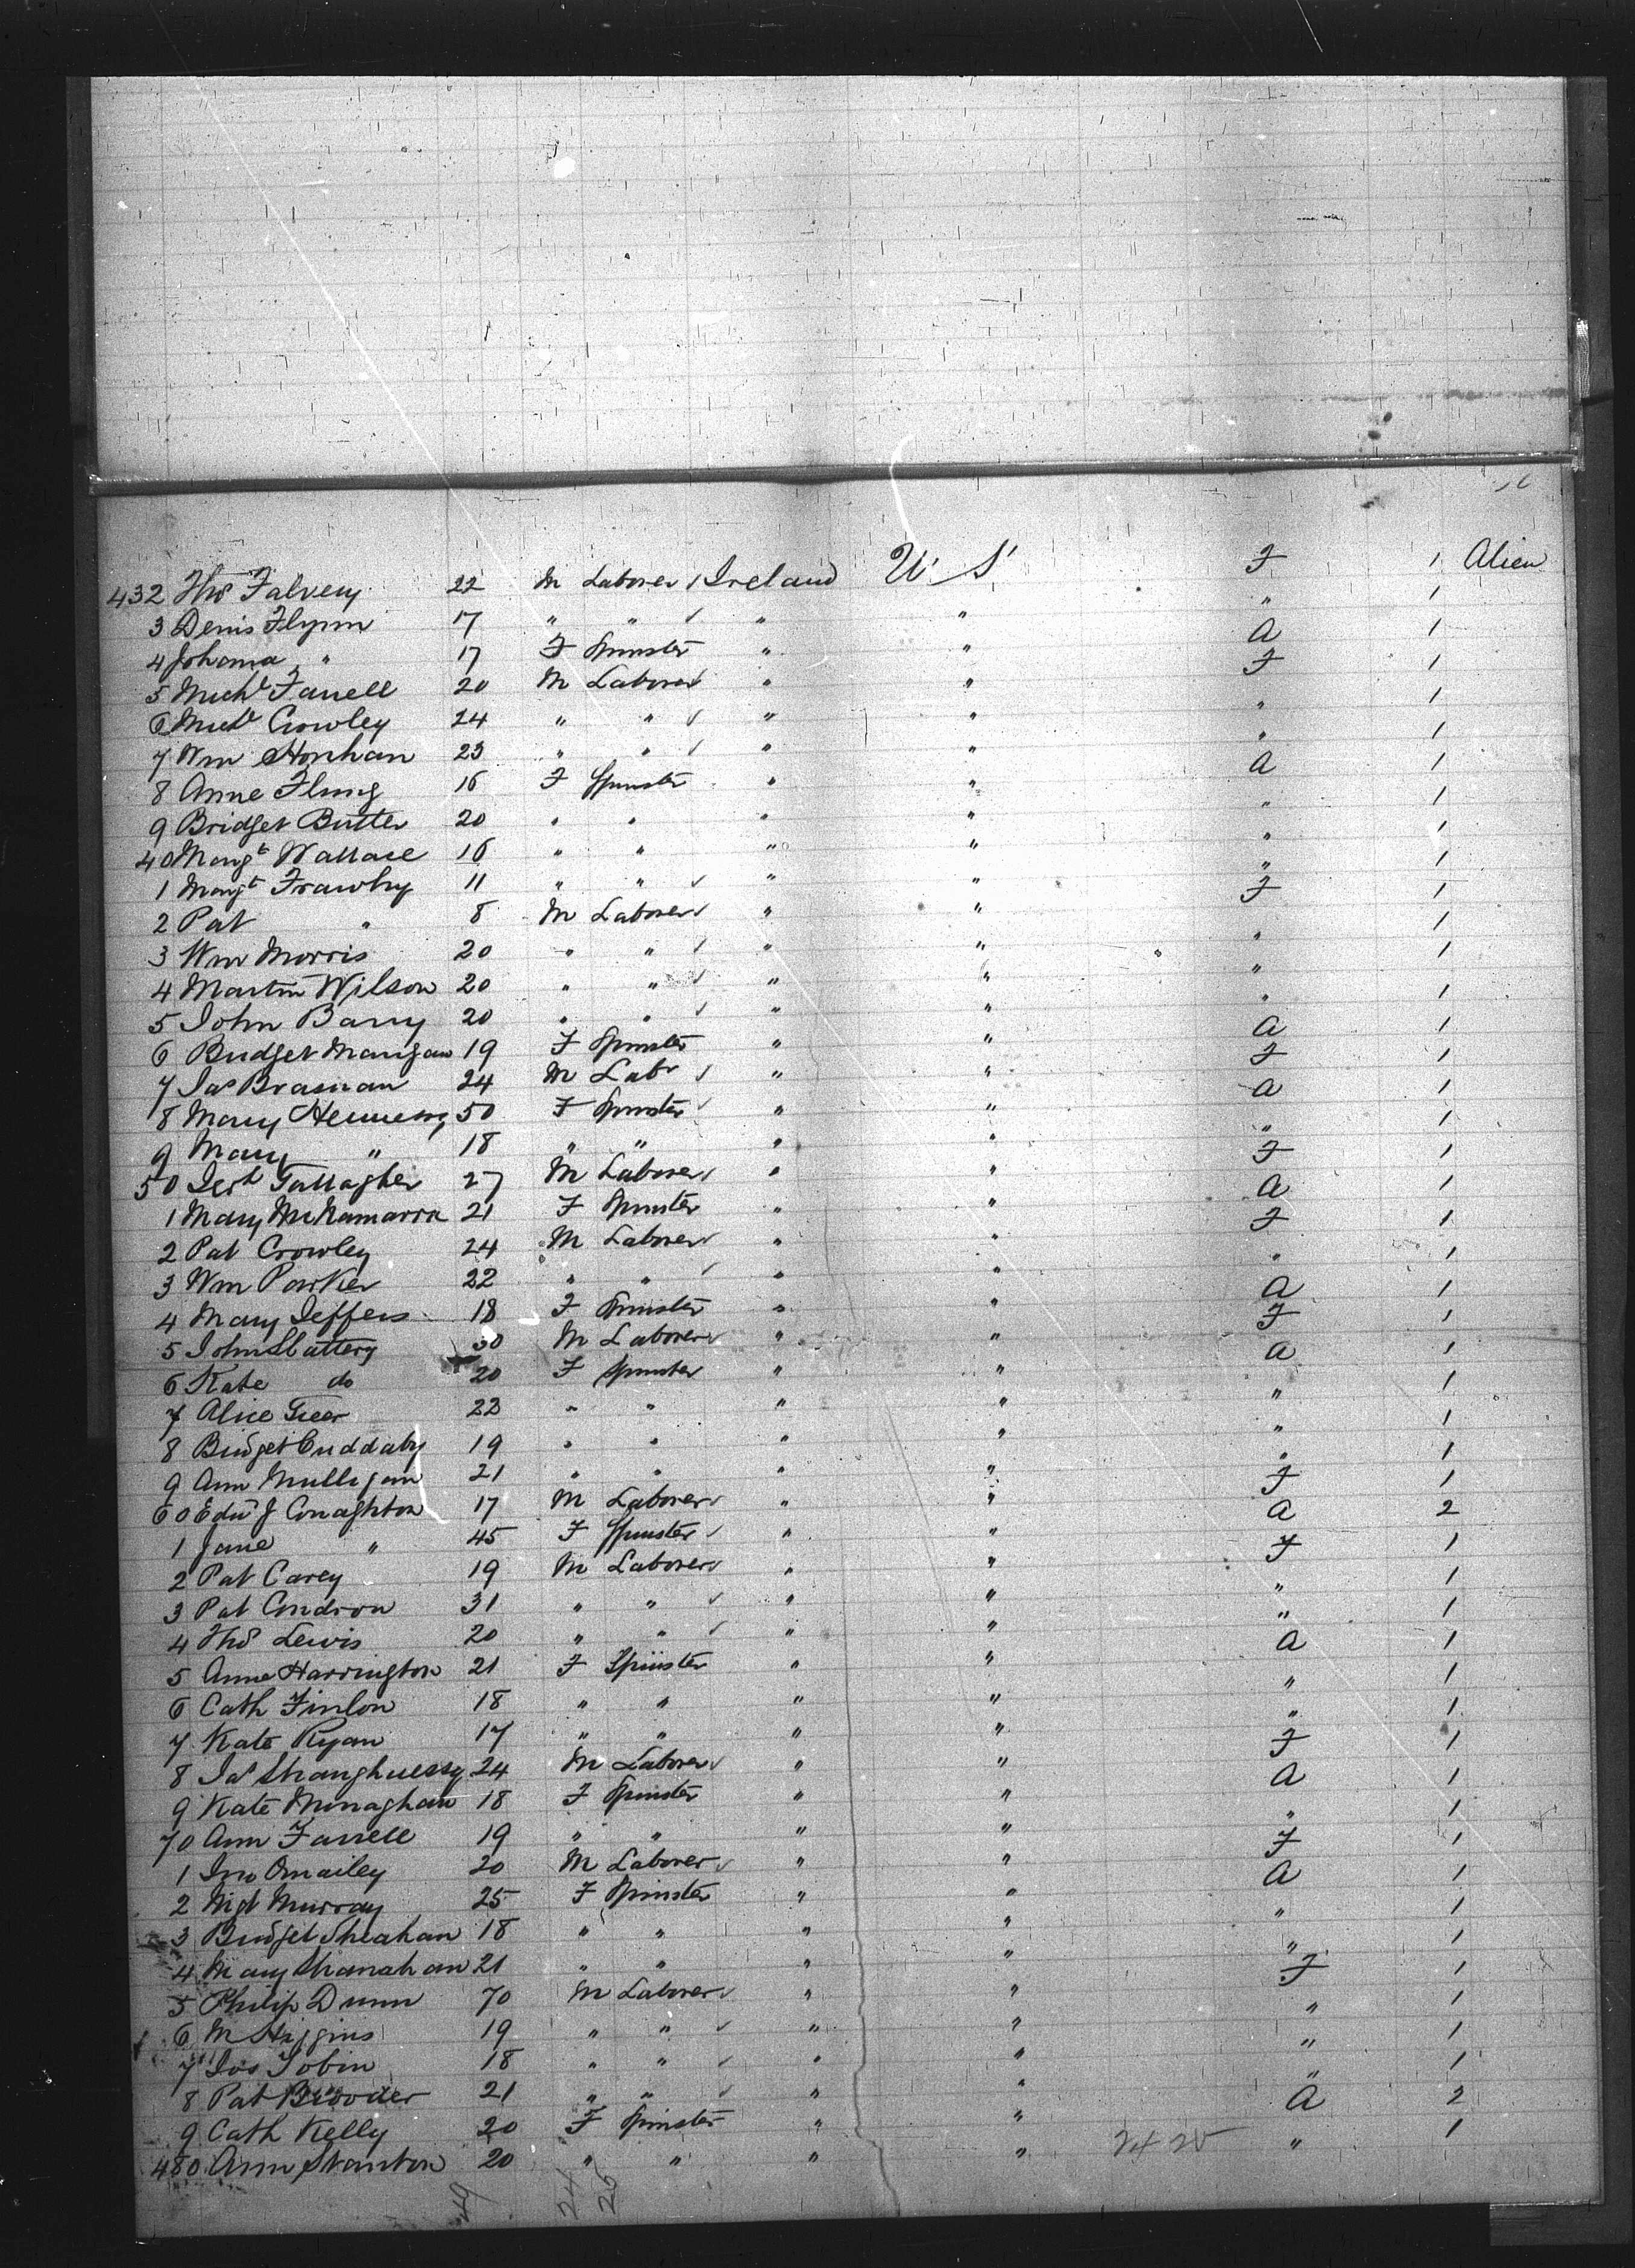 432 Thos Falvey 22 M Laborer Ireland U S F 1 Alien
3 Denis Flynn 17 " " " " " 1
4 Johana " 17 F Spinster " " A 1
5 Michl Farrell 20 M Laborer " " F 1
6 Michl Crowley 24 " " " " " 1
7 Wm Honhan 23 " " " " " 1
8 Anne 16 F Spinster " " A 1
9 Bridget Butler 20 " " " " " 1
40 Margt Wallace 16 " " " " " 1
1 Margt Frawley 11 " " " " " 1
2 Pat " 8 M Laborer " " F 1
3 Wm Morris 20 " " " " " 1
4 Martin Wilson 20 " " " " " 1
5 John Barry 20 " " " " " 1
6 Bridget Mangan 19 F Spinster " " A 1
7 Jas Brasnan 24 M Labr " " F 1
8 Mary Hennessy 50 F Spinster " " A 1
9 Mary " 18 " " " " " 1
50 Gallagher 27 M Laborer " " F 1
1 Mary McNamarra 21 F Spinster " " A 1
2 Pat Crowley 24 M Laborer " " F 1
3 Wm Parker 22 " " " " " 1
4 Mary Jeffers 18 F Spinster " " A 1
5 John Slattery 30 M Laborer " " F 1
6 Kate do 20 F Spinster " " A 1
7 Alice Greer 22 " " " " " 1
8 Bridget Cuddahy 19 " " " " " 1
9 Ann Mulligan 21 " " " " " 1
60 Edw J Conaghton 17 M Laborer " " F 1
1 Jane " 45 F Spinster " " A 2
2 Pat Carey 19 M Laborer " " F 1
3 Pat Condron 31 " " " " " 1
4 Thos Lewis 20 " " " " " 1
5 Anne Harrington 21 F Spinster " " A 1
6 Cath Finlon 18 " " " " " 1
7 Kate Ryan 17 " " " " " 1
8 Jas Shaughnessy 24 M Laborer " " F 1
9 Kate Monaghan 18 F Spinster " " A 1
70 Ann Farrell 19 " " " " " 1
1 Jno Omailey 20 M Laborer " " F 1
2 Mgt Murray 25 F Spinster " " A 1
3 Bridget Sheahan 18 " " " " " 1
4 Mary Shanahan 21 " " " " " 1
5 Philip Dunn 70 M Laborer " " F 1
6 M Higgins 19 " " " " " 1
7 Jos Tobin 18 " " " " " 1
8 Pat Brooder 21 " " " " " 1
9 Cath Kelly 20 F Spinster " " A 2
480 Ann Stanton 20 " " " " " 1
24 25
49 24 25